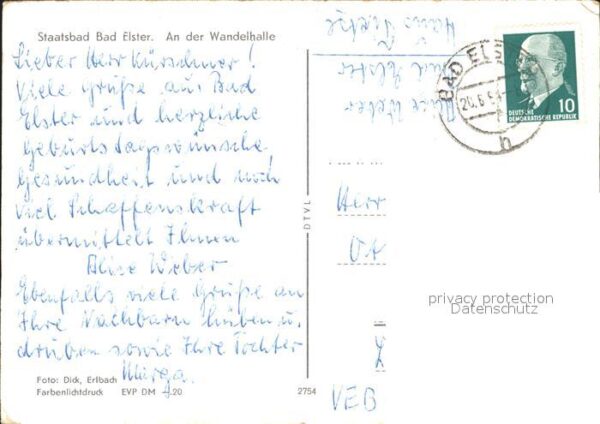 Staatsbad Bad Elster. An der Wandelhalle
Lieber Herr Kürschner!
Viele Grüße aus Bad
Elster und herzliche
Geburtstagswünsche,
Gesundheit und noch
viel Schaffenskraft
übermittelt Ihnen
Alice Weber
Ebenfalls viele Grüße an
Ihre Nachbarn hüben u.
drüben sowie Ihre Tochter
Marga.
Foto: Dick, Erlbach
Farbenlichtdruck EVP DM -.20
2754
DTVL
Alice Weber
Bad Elster
Haus
BAD ELSTER
b
10
DEUTSCHE
DEMOKRATISCHE REPUBLIK
Herr
VEB
privacy protection
Datenschutz